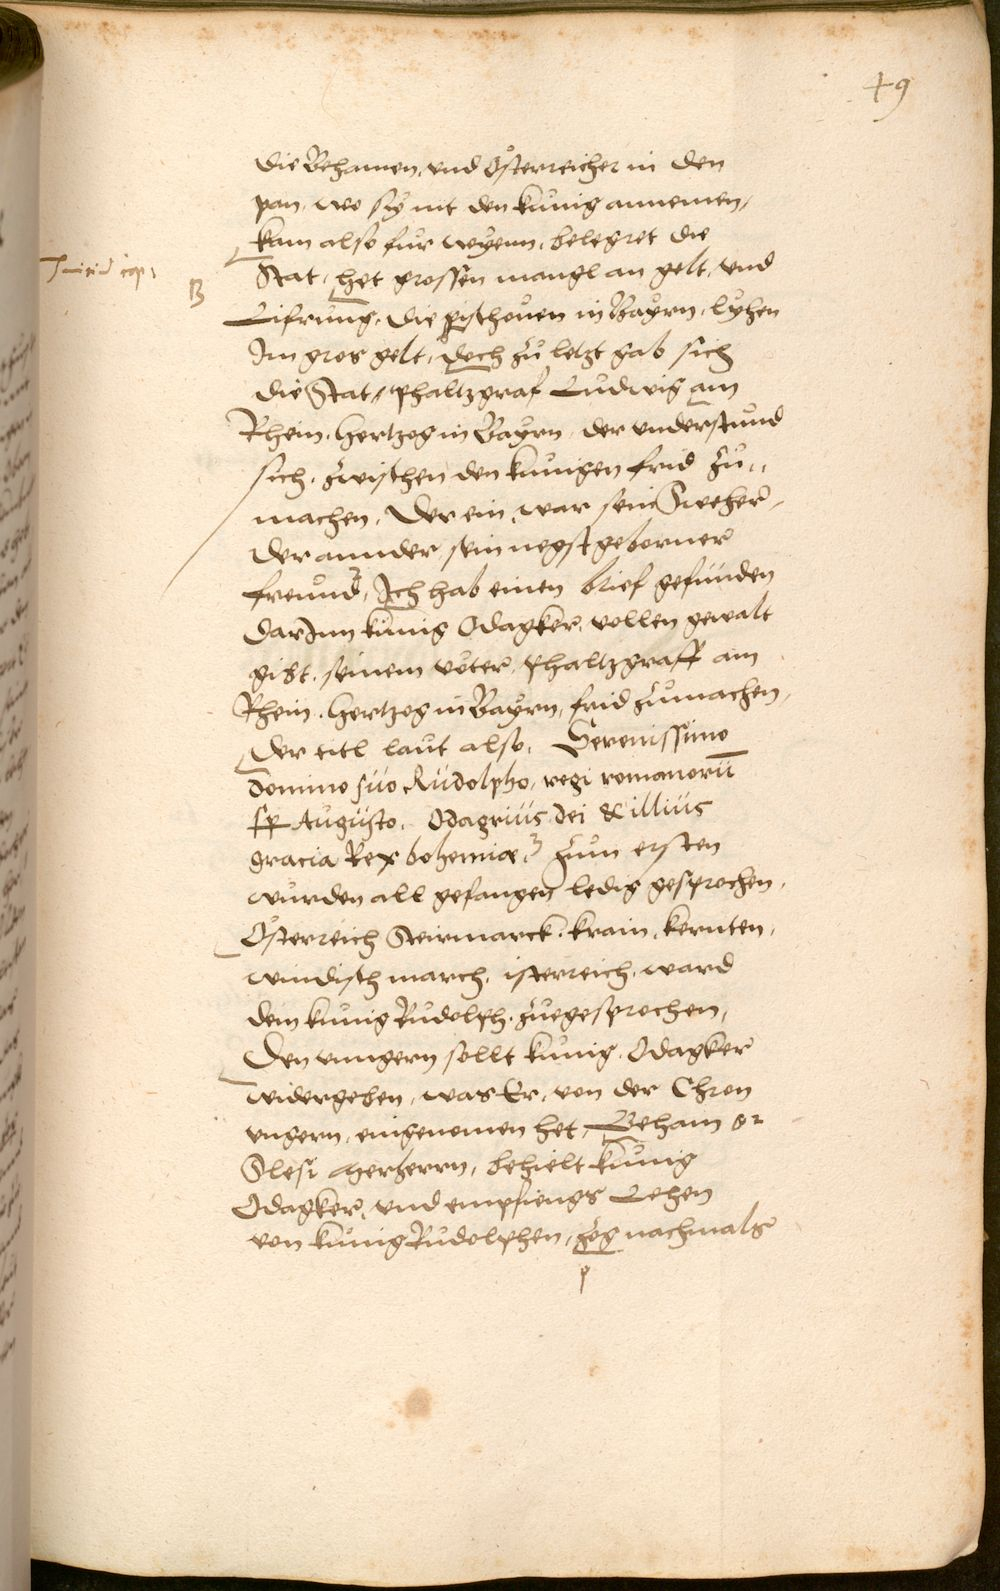 49
die Behamen, vnd Österreicher in den
pan, wo sÿ nit den kunig annemen,
kam also fur wyenn, belegret die
Stat, het grossen mangl an gelt, vnd
B
Lifrung, die pischouen in Bayrn, lyhen
Im gros gelt, doch zu letzt gab sich
die Stat, Phaltzgraf Ludwig am
Rhein, Hertzog in Bayrn, der understund
sich, zwischen den kunigen frid zu
machen, Der ein, war sein Sweher,
der annder, sein negst geborner
freund, Ich hab einen brief gefunden
darInn kunig Odagker, vollen gewalt
gibt, seinem veter, Phaltzgraff am
Rhein, Hertzog in Bayrn, frid zumachen,
der titl laut also, Serenissimo
domino suo Rudolpho, regi romanorū
sp Augusto, Odagrius dei & illius
gracia Rex bohemiæ, Zum ersten
wurden all gefangen ledig gesprochen,
Österreich Steirmarck, krain, kernten,
windisch march, isterreich, ward
dem kunig Rudolph, zuegesprochen,
Den vnngern sollt kunig, Odagker
widergeben, was Er, von der Chron
vngern, eingenomen het, Beham
Slesi Merhern, behielt kunig
Odagker, vnd empfiengs Lehen
von kunig Rudolphen, zog nachmals